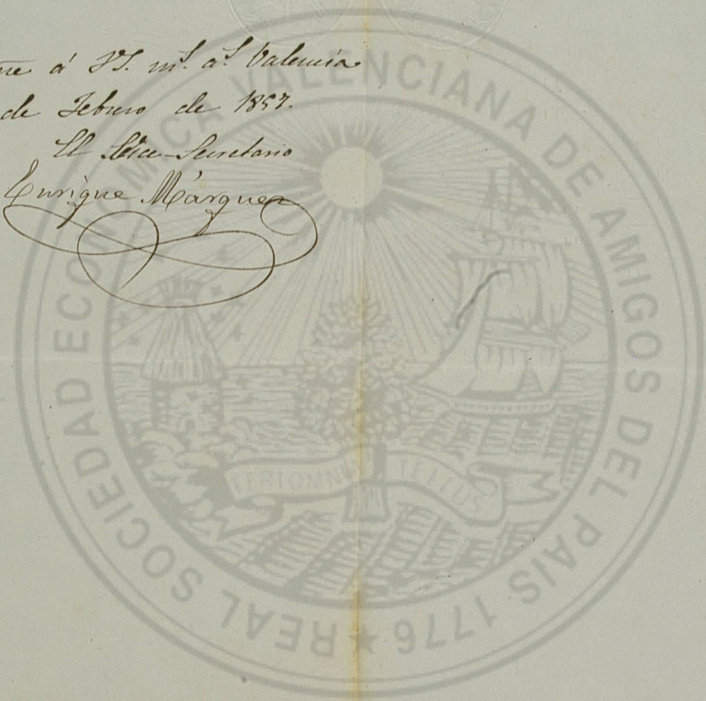 á VS. ms. as. Valencia
de Febrero de 1857.
El Vice-Secretario
Enrique Márquez
REAL SOCIEDAD ECONÓMICA VALENCIANA DE AMIGOS DEL PAIS 1776
FERT OMNIA TELLUS